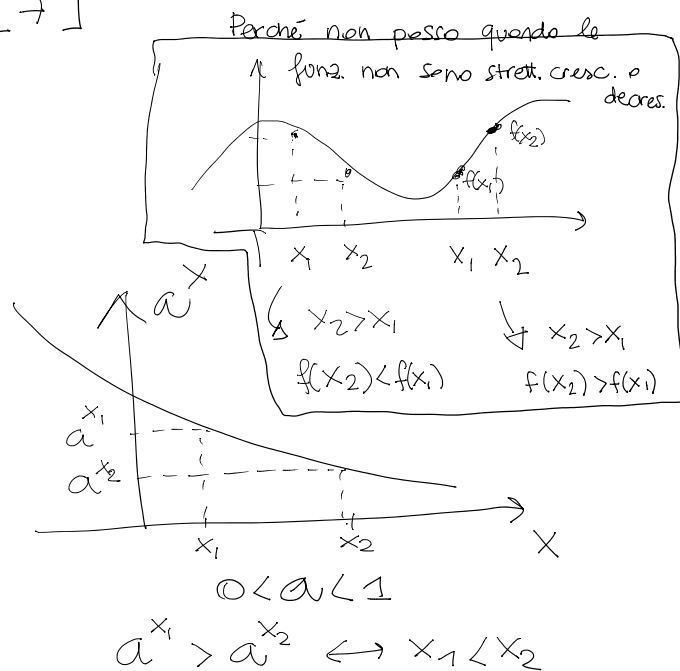 [→]
Perché non posso quando le
funz. non sono strett. cresc. o
decres.
f(x₂)
f(x₁)
x₁ x₂ x₁ x₂
x₂>x₁ x₂>x₁
f(x₂)<f(x₁) f(x₂)>f(x₁)
aˣ
a^x₁
a^x₂
x₁ x₂ x
0<a<1
a^x₁ > a^x₂ ↔ x₁<x₂